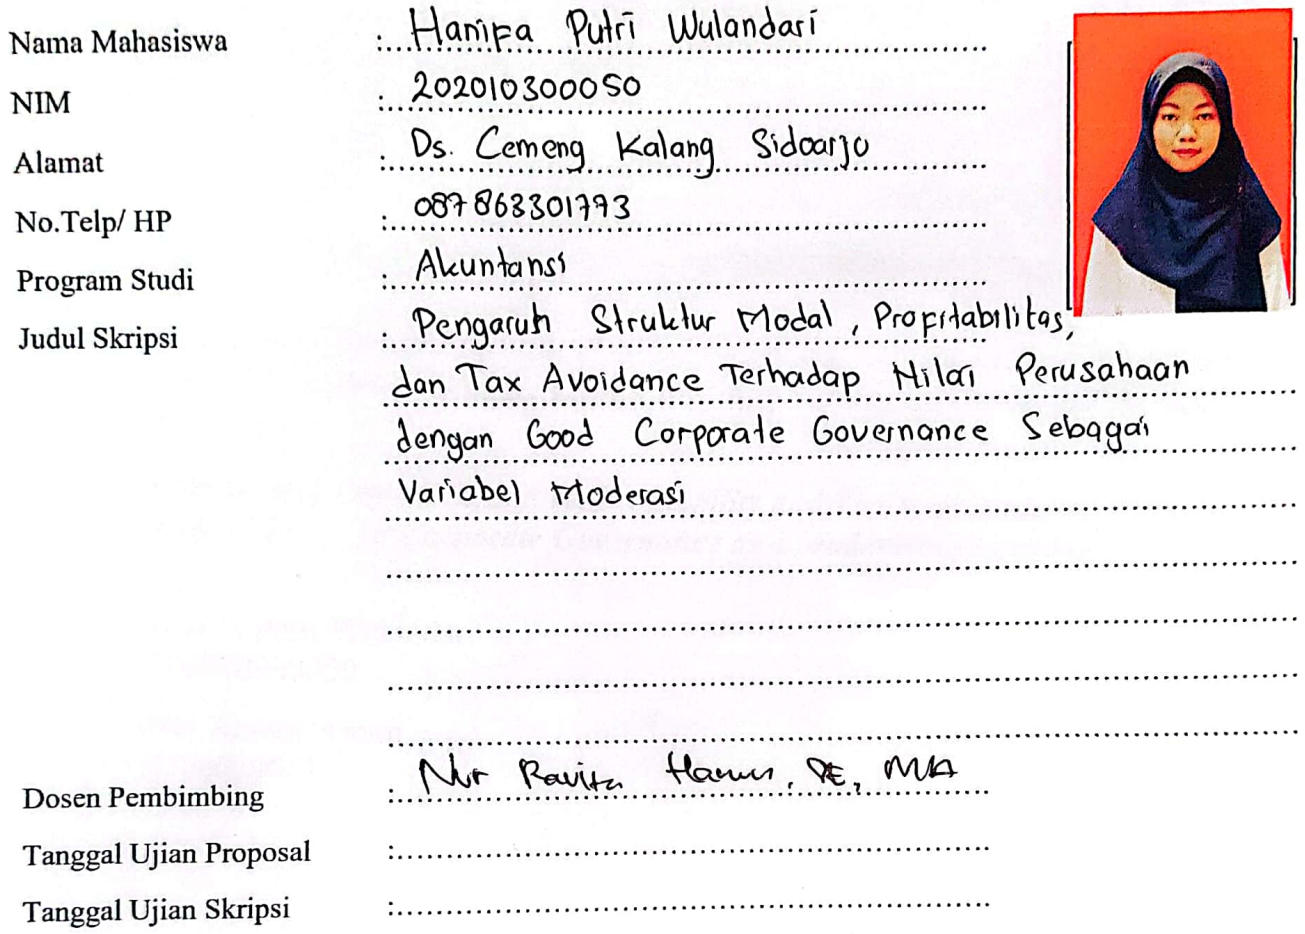 Nama Mahasiswa : Hanifa Putri Wulandari
NIM : 202010300050
Alamat : Ds. Cemeng Kalang Sidoarjo
No.Telp/ HP : 087863301793
Program Studi : Akuntansi
Judul Skripsi : Pengaruh Struktur Modal, Profitabilitas,
dan Tax Avoidance Terhadap Nilai Perusahaan
dengan Good Corporate Governance Sebagai
Variabel Moderasi
Dosen Pembimbing : Nur Ravita Hanun, SE, MA
Tanggal Ujian Proposal :
Tanggal Ujian Skripsi :